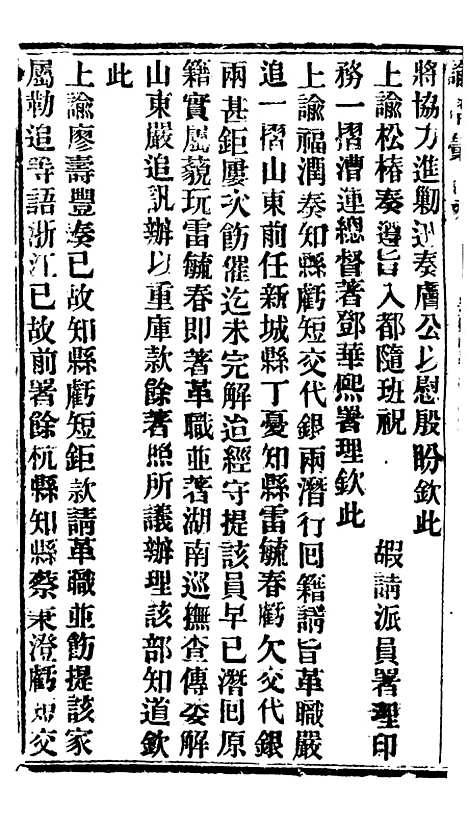 將協力進勦迅奏膚公以慰殷盼欽此
上諭松椿奏遵旨入都隨班祝　嘏請派員署理印
務一摺漕運總督著鄧華熙署理欽此
上諭福潤奏知縣虧短交代銀兩潛行回籍請旨革職嚴
追一摺山東前任新城縣丁憂知縣雷毓春虧欠交代銀
兩甚鉅屢次飭催迄未完解迨經守提該員早已潛回原
籍實屬藐玩雷毓春即著革職並著湖南巡撫查傳委解
山東嚴追訊辦以重庫款餘著照所議辦理該部知道欽
此
上諭廖壽豐奏已故知縣虧短鉅款請革職並飭提該家
屬勒追等語浙江已故前署餘杭縣知縣蔡秉澄虧短交